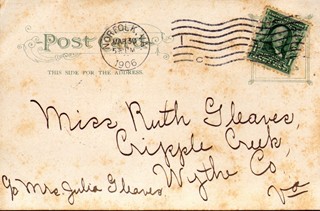 Post
NORFOLK, VA.
1906
THIS SIDE FOR THE ADDRESS.
Miss Ruth Gleaves,
Cripple Creek,
Wythe Co,
c/o Mrs Julia Gleaves. Va